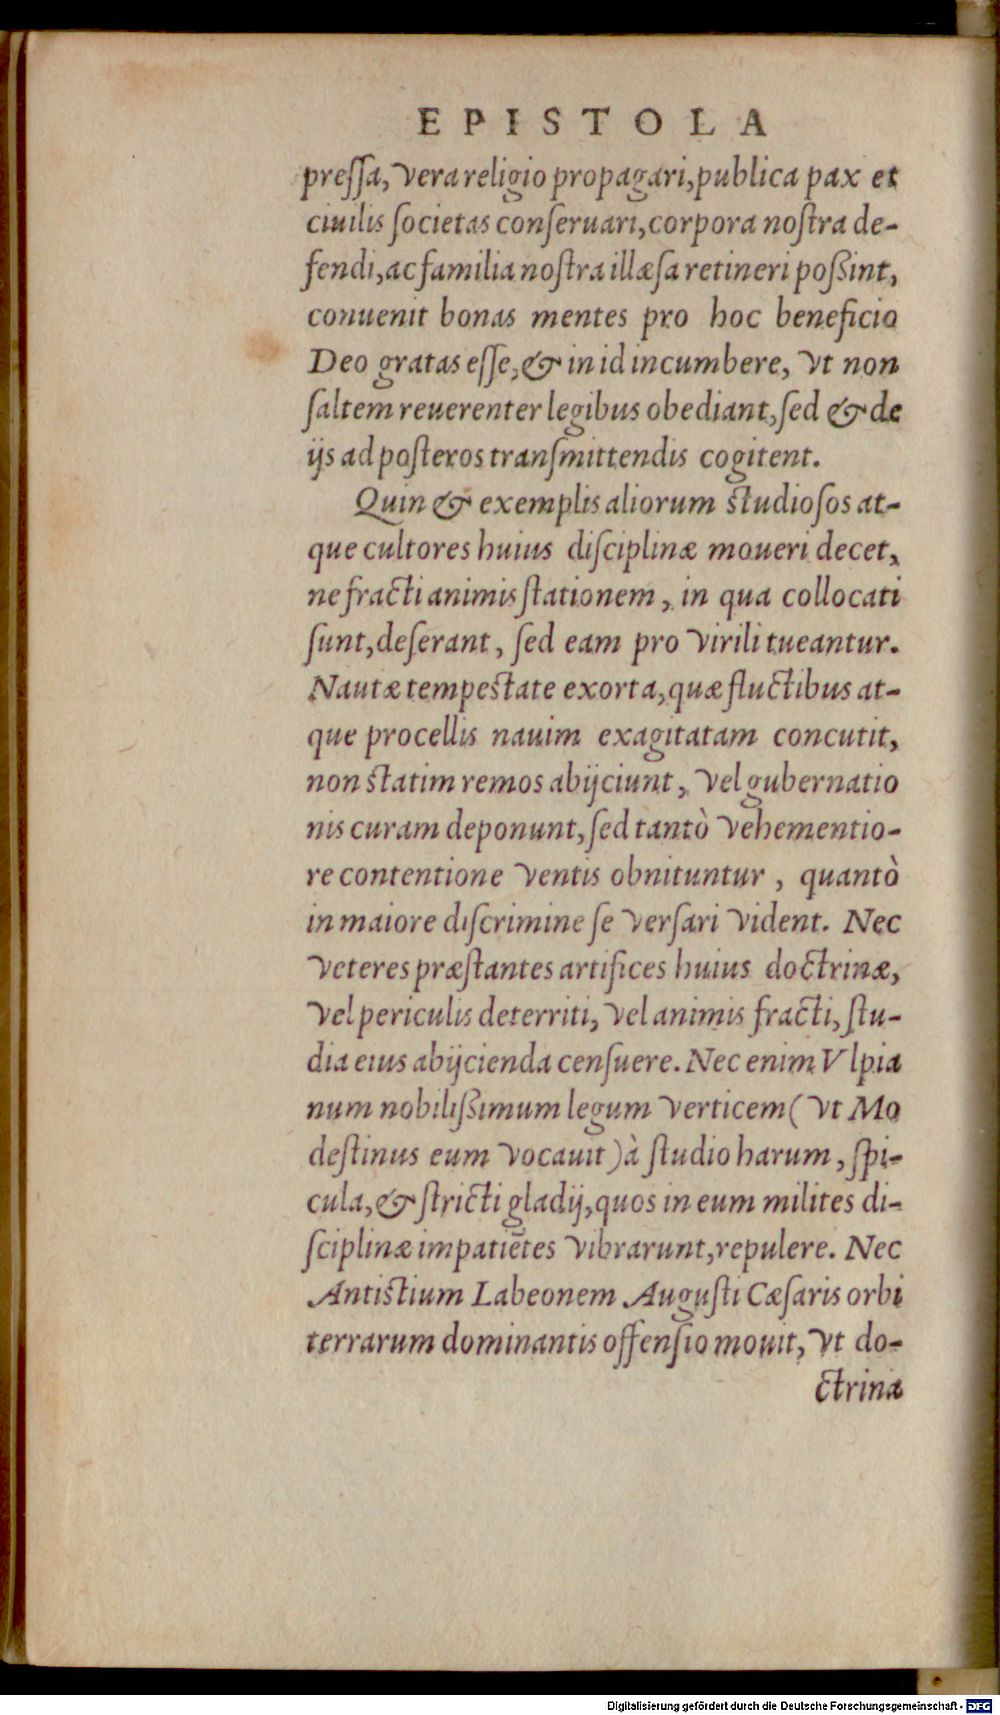 EPISTOLA
preſſa, vera religio propagari, publica pax et
ciuilis ſocietas conſeruari, corpora noſtra de-
fendi, ac familia noſtra illæſa retineri poßint,
conuenit bonas mentes pro hoc beneficio
Deo gratas eſſe, & in id incumbere, vt non
ſaltem reuerenter legibus obediant, ſed & de
ijs ad poſteros tranſmittendis cogitent.
Quin & exemplis aliorum ſtudioſos at-
que cultores huius diſciplinæ moueri decet,
ne fracti animis ſtationem, in qua collocati
ſunt, deſerant, ſed eam pro virili tueantur.
Nautæ tempeſtate exorta, quæ fluctibus at-
que procellis nauim exagitatam concutit,
non ſtatim remos abijciunt, vel gubernatio
nis curam deponunt, ſed tantò vehementio-
re contentione ventis obnituntur, quantò
in maiore diſcrimine ſe verſari vident. Nec
veteres præſtantes artifices huius doctrinæ,
vel periculis deterriti, vel animis fracti, ſtu-
dia eius abijcienda cenſuere. Nec enim Vlpia
num nobilißimum legum verticem (vt Mo
deſtinus eum vocauit) à ſtudio harum, ſpi-
cula, & ſtricti gladij, quos in eum milites di-
ſciplinæ impatiẽtes vibrarunt, repulere. Nec
Antiſtium Labeonem Auguſti Cæſaris orbi
terrarum dominantis offenſio mouit, vt do-
ctrina
Digitalisierung gefördert durch die Deutsche Forschungsgemeinschaft - DFG